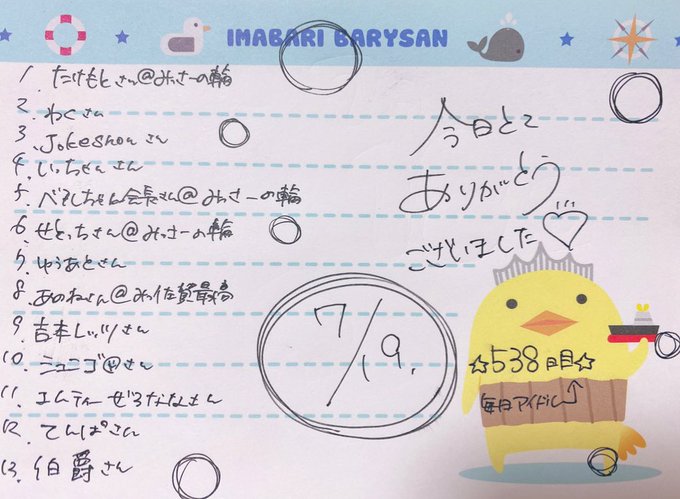 IMABARI BARYSAN
1. たけもとさん@みっさーの輪
2. わくさん
3. Jokeshouさん
4. しっちゃんさん
5. べえしちゃん会長さん@みっさーの輪
6. せとっちさん@みっさーの輪
7. ゆうあとさん
8. あのねさん@みっ佐賀最高
9. 吉本レッツさん
10. ジュニゴ@さん
11. エムティーぜろななさん
12. てんぱさん
13. 伯爵さん
今日とて
ありがとう...
ございました♡
7/19.
☆538日目☆
毎日アイドル↑